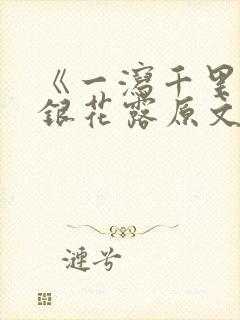 《一泻千里
银花露原文
涟兮